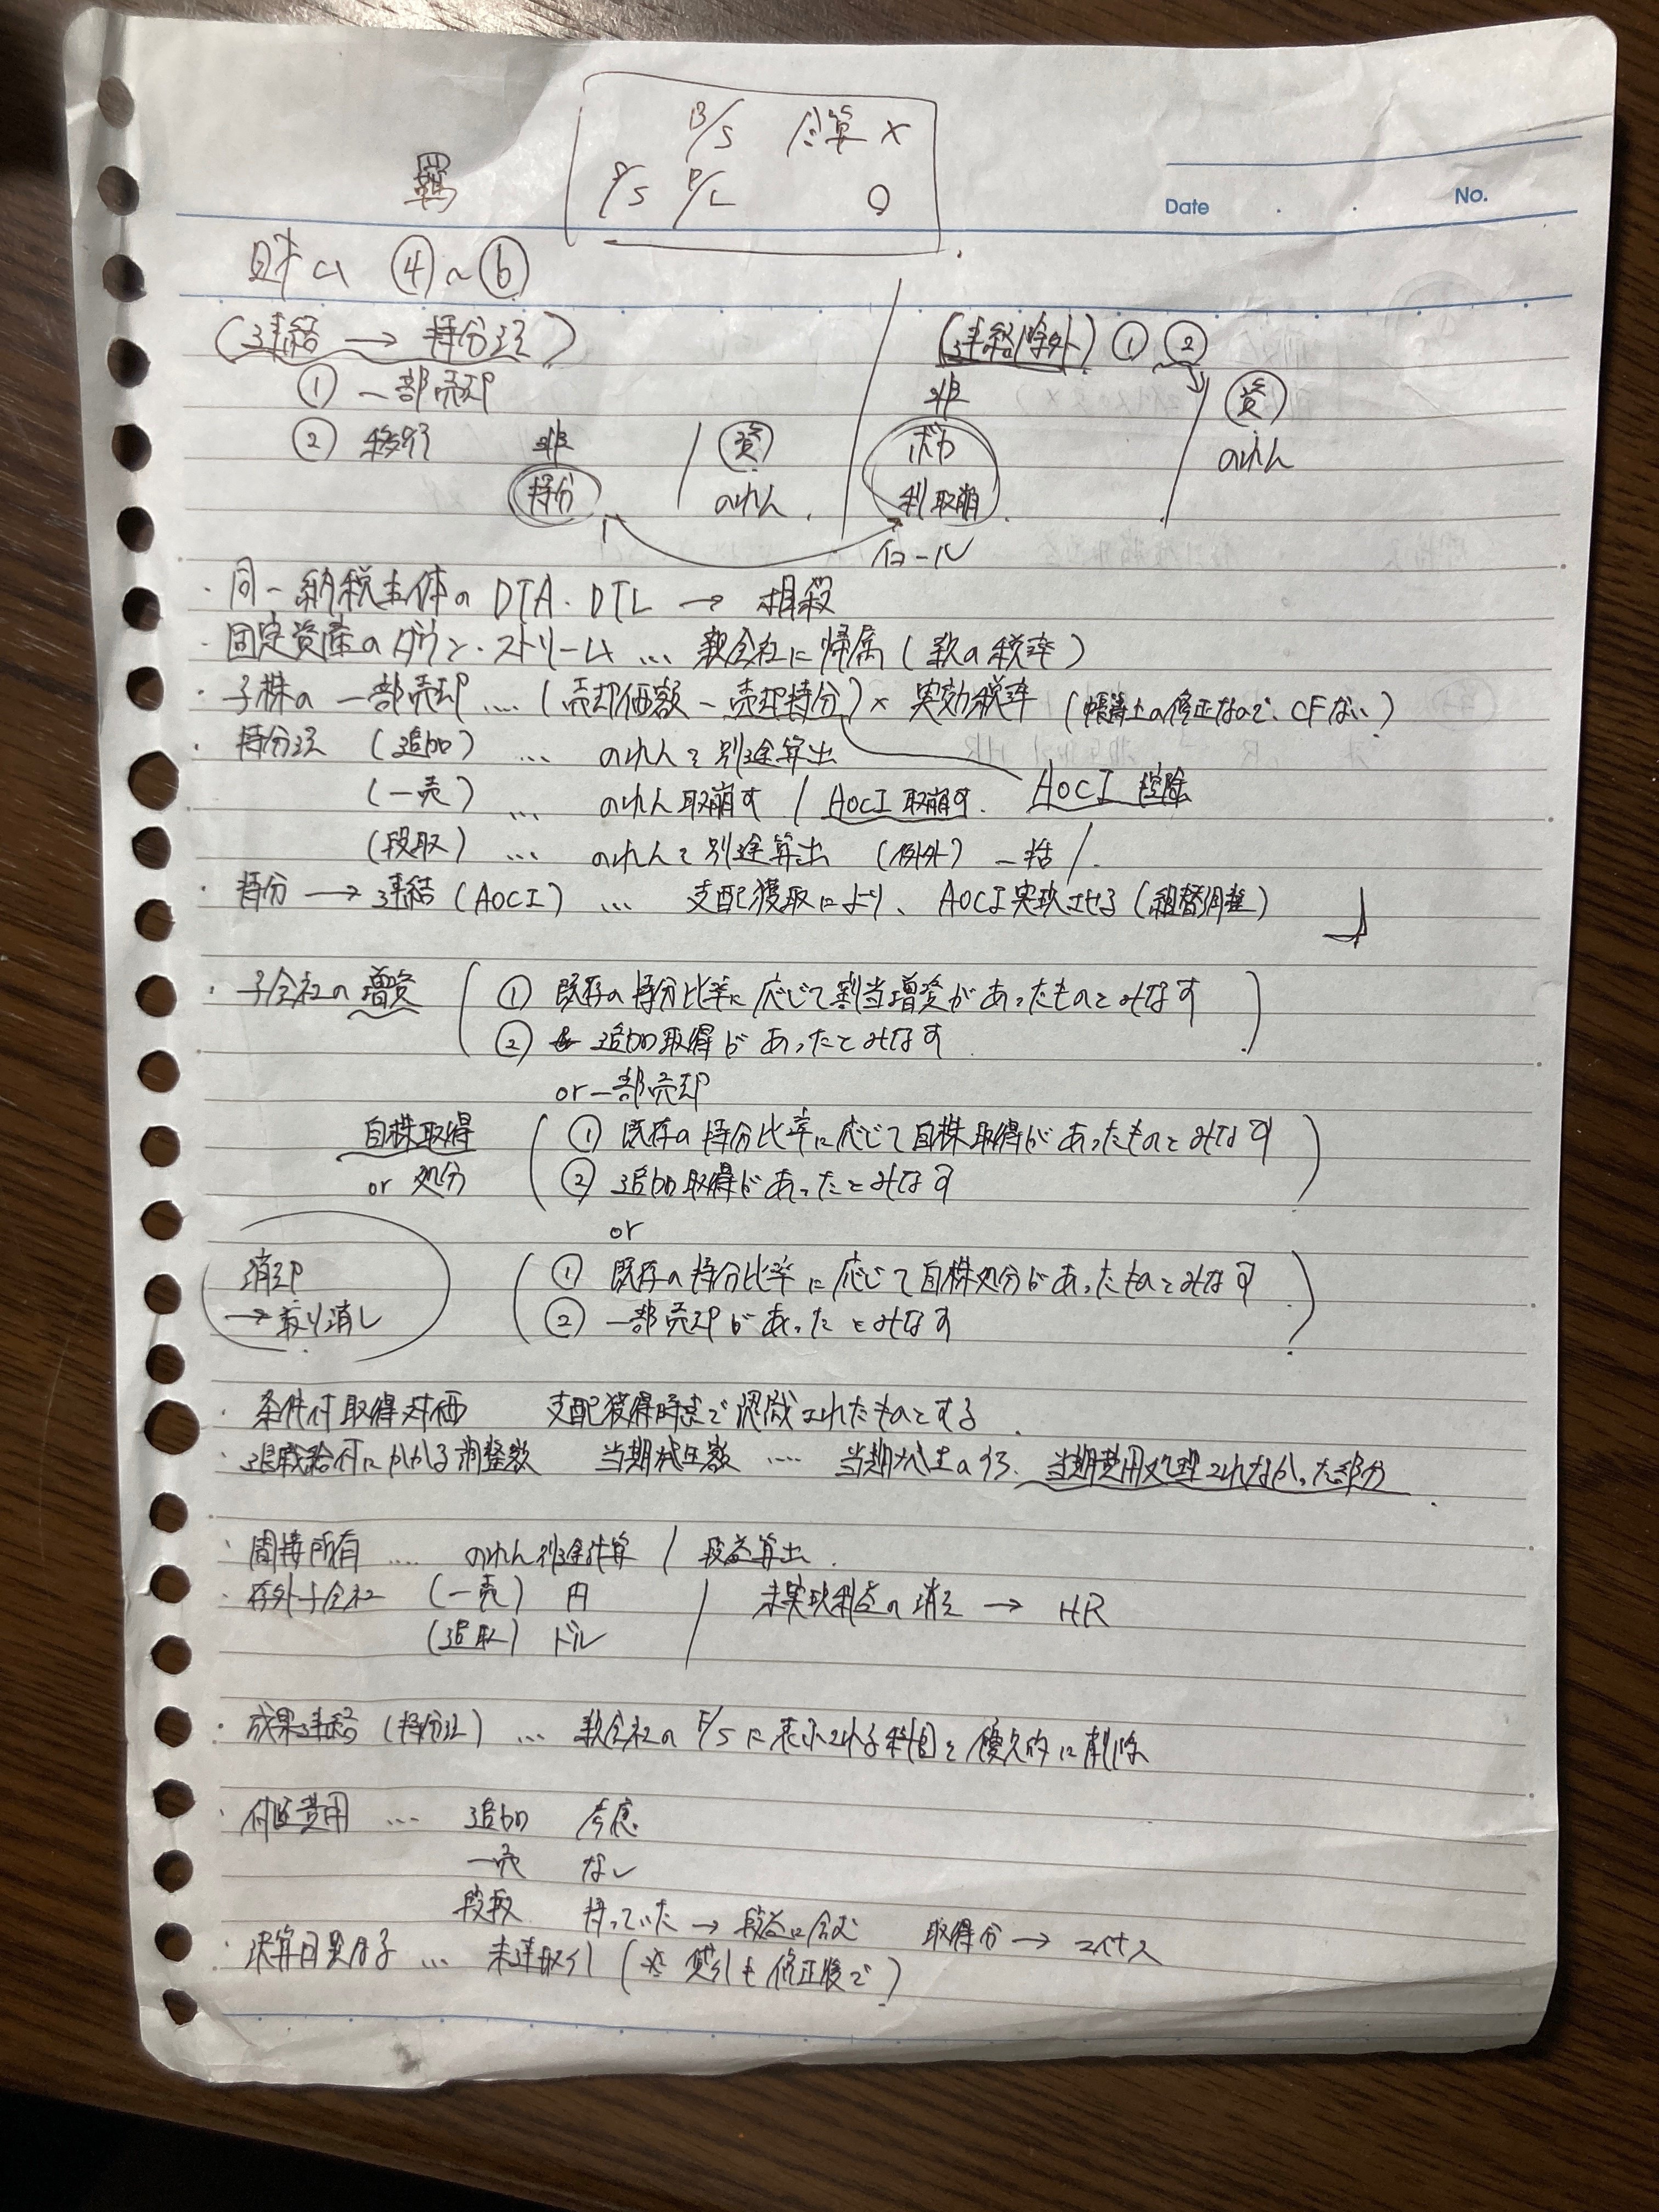 B/S 合算 ×
P/S P/L ○
Date . . No.
④~⑥
(連結 → 持分法)
① 一部売却
② 移行 非 資
持分 のれん
(連結除外) ① ②
非 資
ポカ のれん
利 取崩
イコール
・同一納税主体の DTA・DTL → 相殺
・固定資産のダウン・ストリーム … 親会社に帰属 (親の税率)
・子株の一部売却 … (売却価額 - 売却持分) × 実効税率 (帳簿上の修正なので、CFない)
・持分法 (追加) … のれんを別途算出
(一売) … のれん取崩す / AOCI 取崩す. AOCI 控除
(段取) … のれんを別途算出 (例外) 一括 /.
・持分 → 連結 (AOCI) … 支配獲取により、AOCI 実現させる (組替調整)
・子会社の増資 ① 既存の持分比率に応じて割当増資があったものとみなす
② 追加取得があったとみなす
or 一部売却
自株取得 ① 既存の持分比率に応じて自株取得があったものとみなす
or 処分 ② 追加取得があったとみなす
or
消却 ① 既存の持分比率に応じて自株処分があったものとみなす
→ 取り消し ② 一部売却があったとみなす
・条件付取得対価 支配獲得時点で認識されたものとする.
・退職給付にかかる調整額 当期発生額 … 当期発生のうち、当期費用処理されなかった部分
・間接所有 … のれん別途計算 / 段益算出.
・在外子会社 (一売) 円 / 未実現利益の消去 → HR
(追取) ドル
・成果連結 (持分法) … 親会社の F/S に表示される科目を優先的に削除
・付随費用 … 追加 考慮
一売 なし
段取 持っていた → 段益に含む 取得分 →
・決算日異なる … 未達取引 (※ 貸引も修正後で)